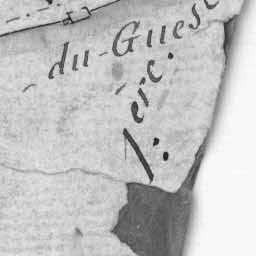 du-Guesc
1.ere.